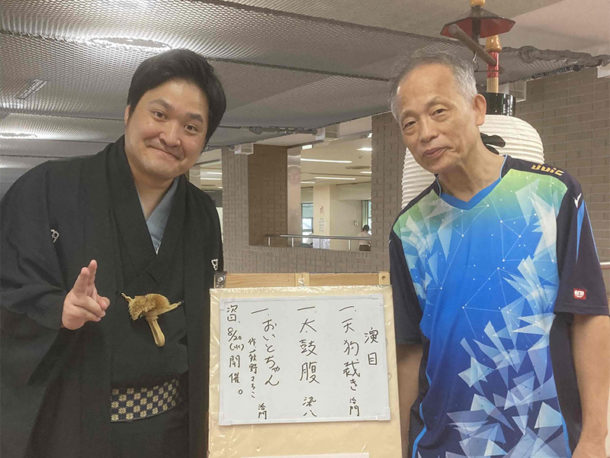 演目
一.天狗裁き 治門
一.太鼓腹 染八
一.おいとちゃん 治門
作.荻野さちこ
次回 8/20(水)開催。